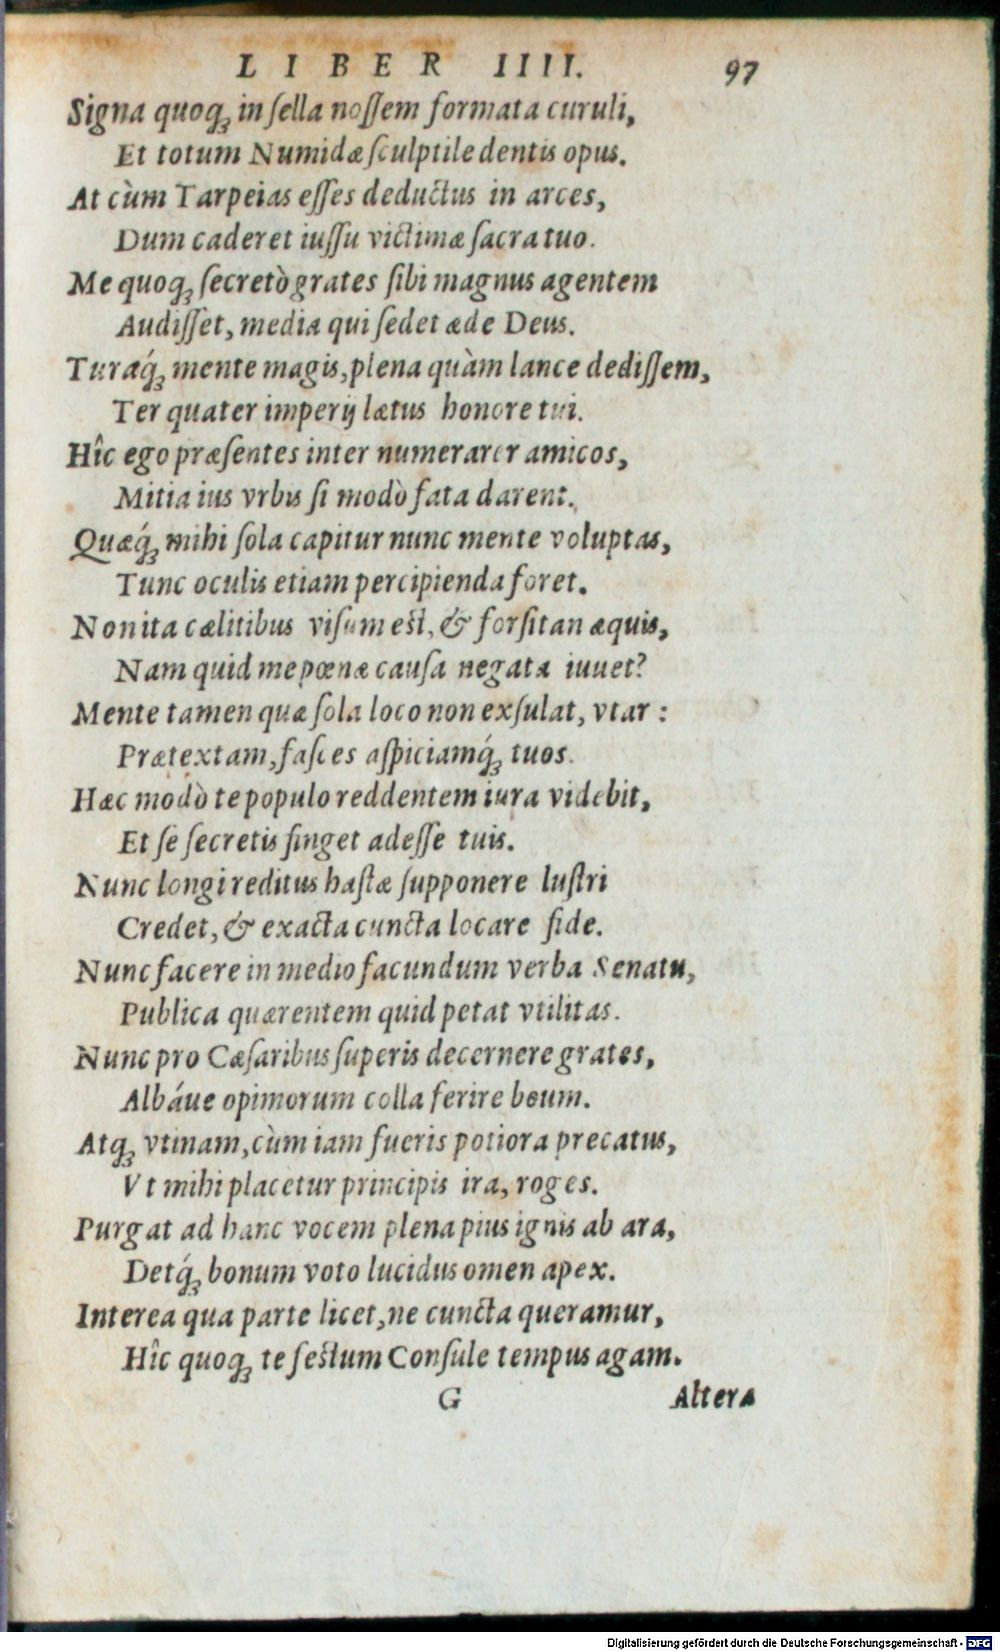 LIBER IIII. 97
Signa quoqꝫ in ſella noſſem formata curuli,
Et totum Numidæ ſculptile dentis opus.
At cùm Tarpeias eſſes deductus in arces,
Dum caderet iuſſu victimæ ſacra tuo.
Me quoqꝫ ſecretò grates ſibi magnus agentem
Audiſſet, media qui ſedet æde Deus.
Turaq́ꝫ mente magis, plena quàm lance dediſſem,
Ter quater imperij lætus honore tui.
Hîc ego præſentes inter numerarer amicos,
Mitia ius vrbis ſi modò fata darent.
Quæq́ꝫ mihi ſola capitur nunc mente voluptas,
Tunc oculis etiam percipienda foret.
Non ita cælitibus viſum est, & forſitan æquis,
Nam quid me pœnæ cauſa negata iuuet?
Mente tamen quæ ſola loco non exſulat, vtar:
Prætextam, faſces aſpiciamq́ꝫ tuos.
Hæc modò te populo reddentem iura videbit,
Et ſe ſecretis finget adeſſe tuis.
Nunc longi reditus haſtæ ſupponere luſtri
Credet, & exacta cuncta locare fide.
Nunc facere in medio facundum verba Senatu,
Publica quærentem quid petat vtilitas.
Nunc pro Cæſaribus ſuperis decernere grates,
Albáue opimorum colla ferire boum.
Atqꝫ vtinam, cùm iam fueris potiora precatus,
Vt mihi placetur principis ira, roges.
Purgat ad hanc vocem plena pius ignis ab ara,
Detq́ꝫ bonum voto lucidus omen apex.
Interea qua parte licet, ne cuncta queramur,
Hîc quoqꝫ te feſtum Conſule tempus agam.
G Altera
Digitalisierung gefördert durch die Deutsche Forschungsgemeinschaft - DFG